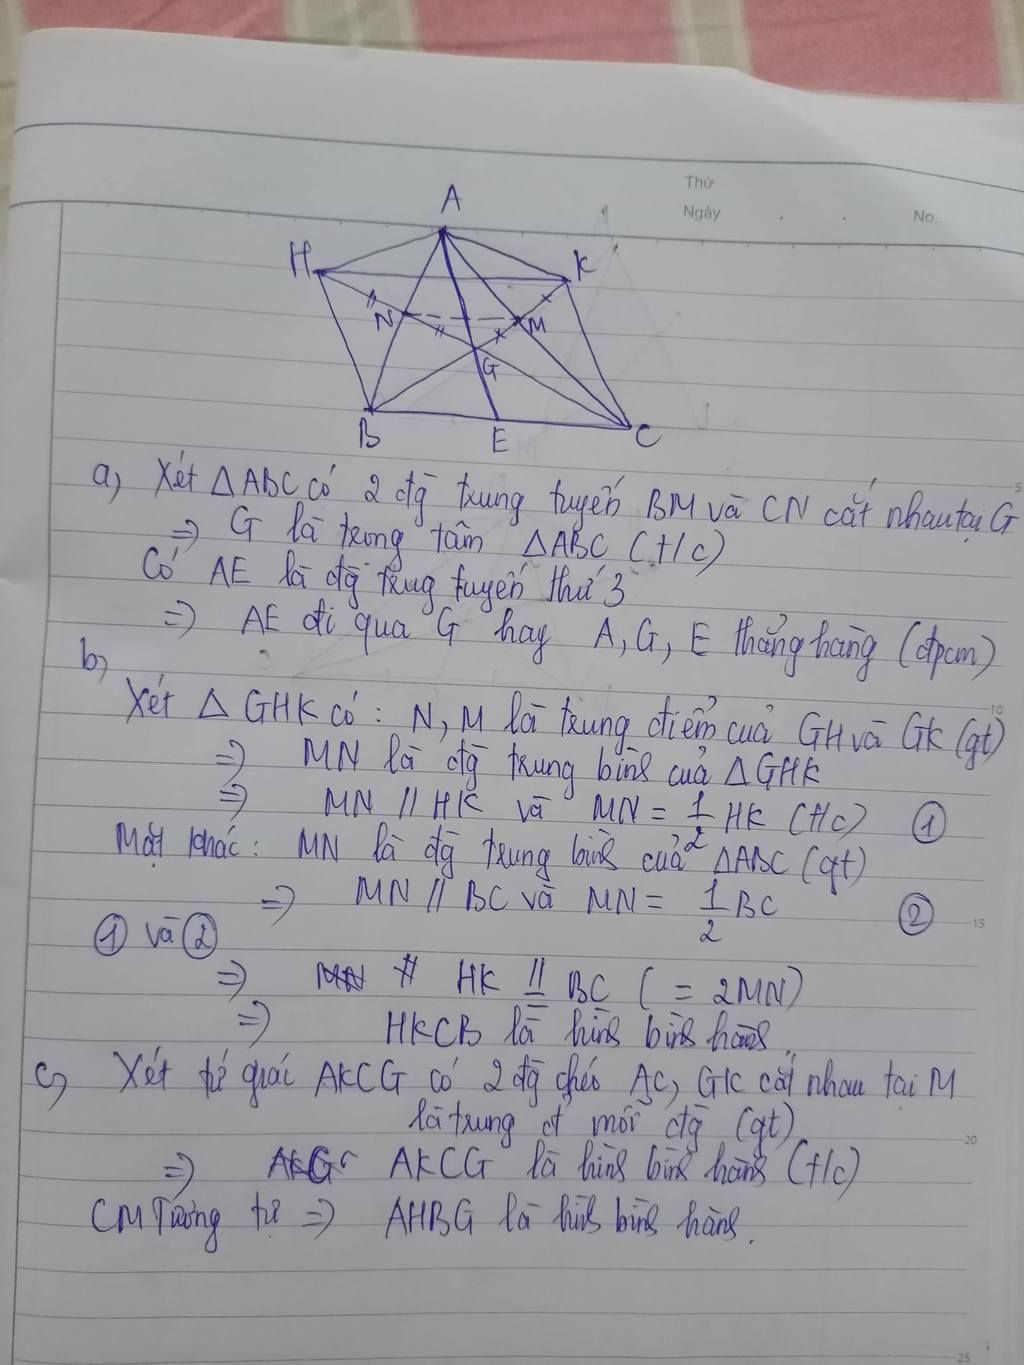 Thứ
Ngày . . No.
A
H
K
N
M
G
B
E
C
a) Xét △ABC có 2 đg trung tuyến BM và CN cắt nhau tại G
=> G là trong tâm △ABC (t/c)
Có AE là đg trug tuyến thứ 3
=> AE đi qua G hay A, G, E thẳng hàng (đpcm)
b)
Xét △ GHK có : N, M là trung điểm cuả GH và GK (gt)
=> MN là đg trung bình cuả △GHK
=> MN // HK và MN = 1/2 HK (t/c) ①
Mặt khác : MN là đg trung bình cuả △ABC (gt)
=> MN // BC và MN = 1/2 BC ②
① và ②
=> HK // = BC ( = 2MN)
=> HKCB là hình bình hành.
c) Xét tứ giác AKCG có 2 đg chéo AC, GK cắt nhau tại M
là trung đ mỗi đg (gt)
=> AKCG là hình bình hành (t/c)
CM Tương tự => AHBG là hình bình hành.
5
10
15
20
25